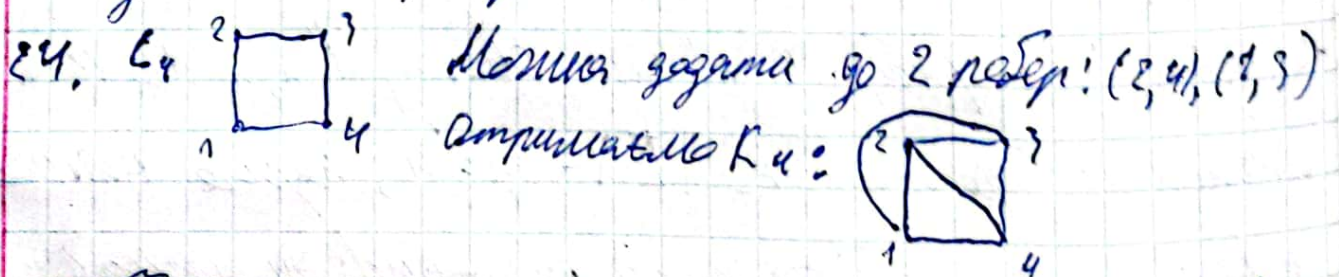 24. C₄ 2 3 Можна додати до 2 ребер: (2,4), (1,3)
1 4 отримаємо K₄: 2 3
1 4